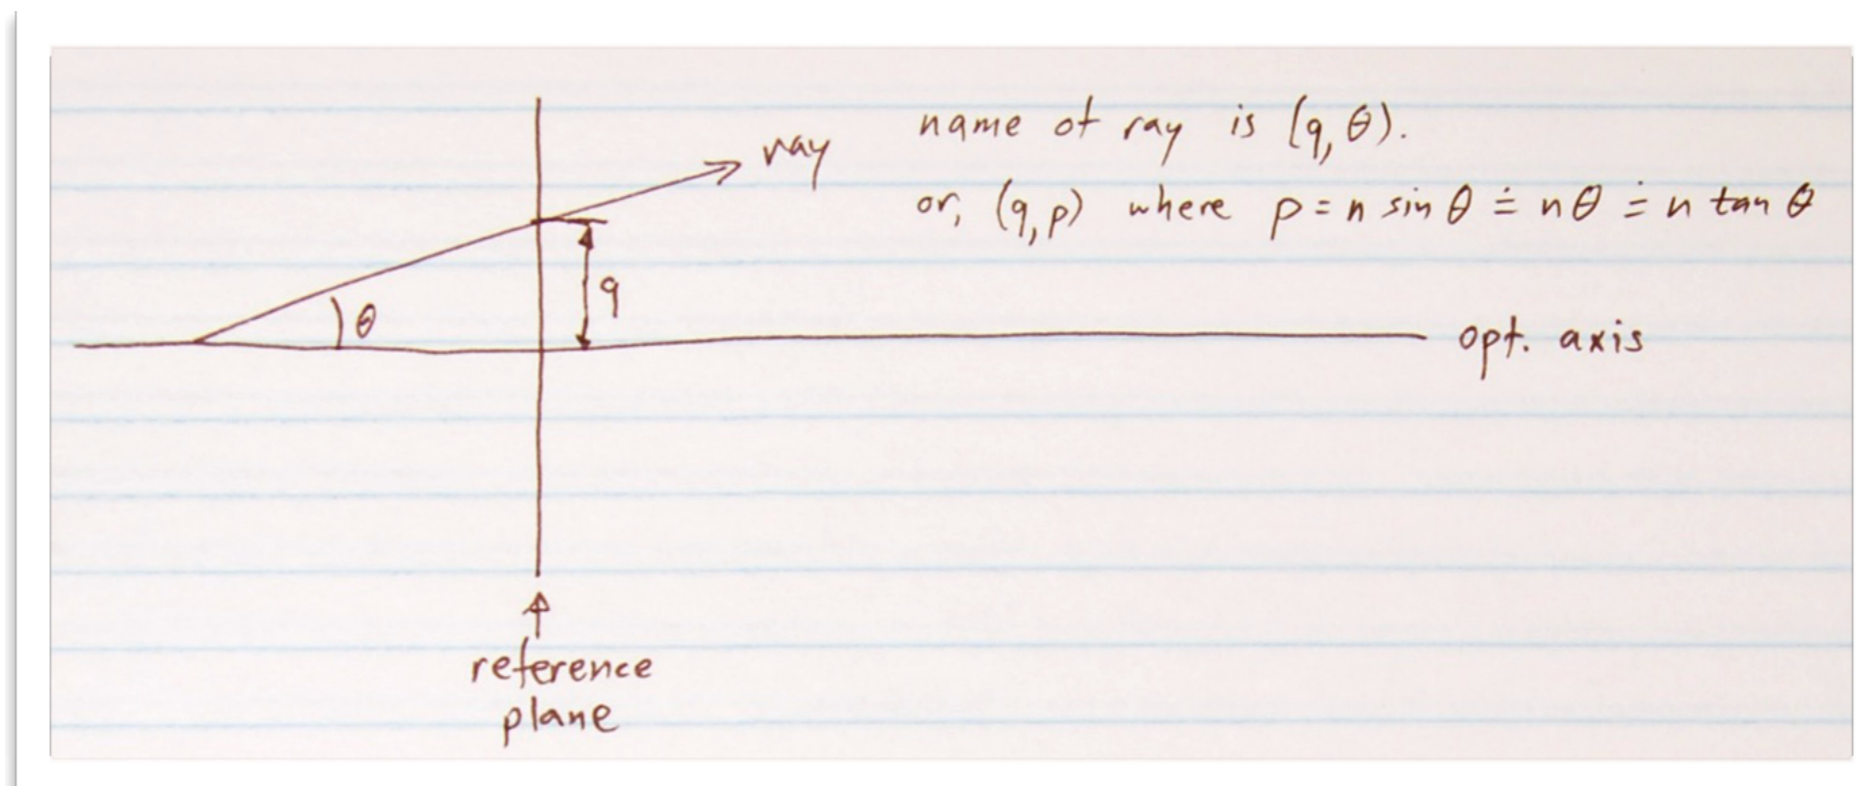 name of ray is (q, θ).
ray
or, (q, p) where p = n sin θ ≐ nθ ≐ n tan θ
q
θ
opt. axis
reference
plane